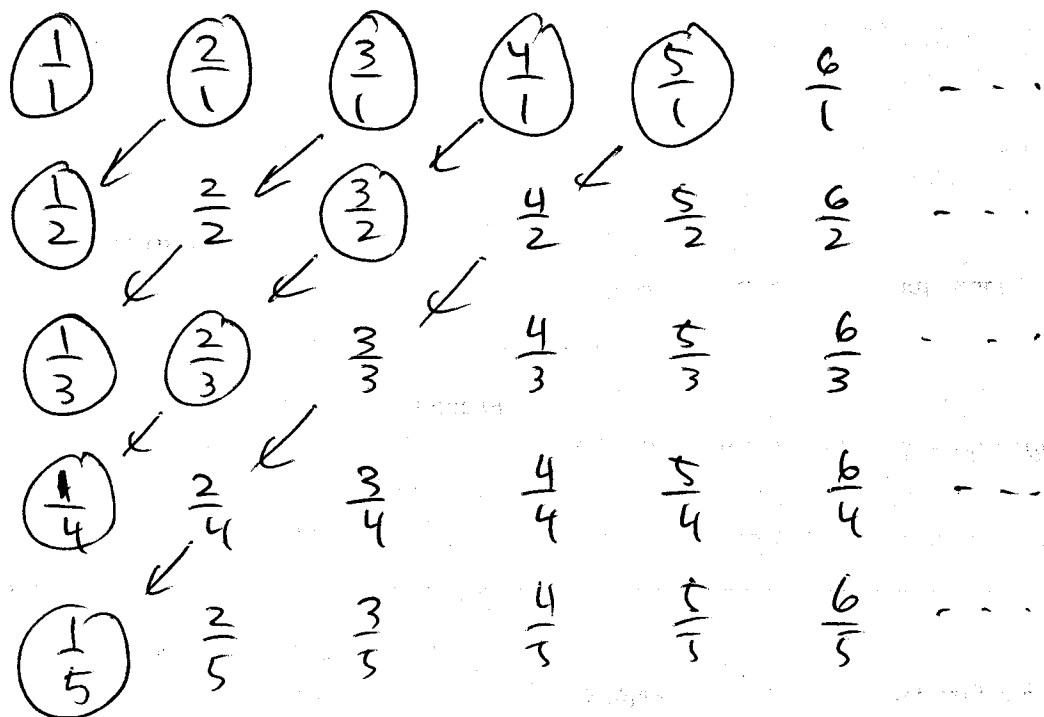 1/1 2/1 3/1 4/1 5/1 6/1 - - -
1/2 2/2 3/2 4/2 5/2 6/2 - - -
1/3 2/3 3/3 4/3 5/3 6/3 - - -
1/4 2/4 3/4 4/4 5/4 6/4 - - -
1/5 2/5 3/5 4/5 5/5 6/5 - - -